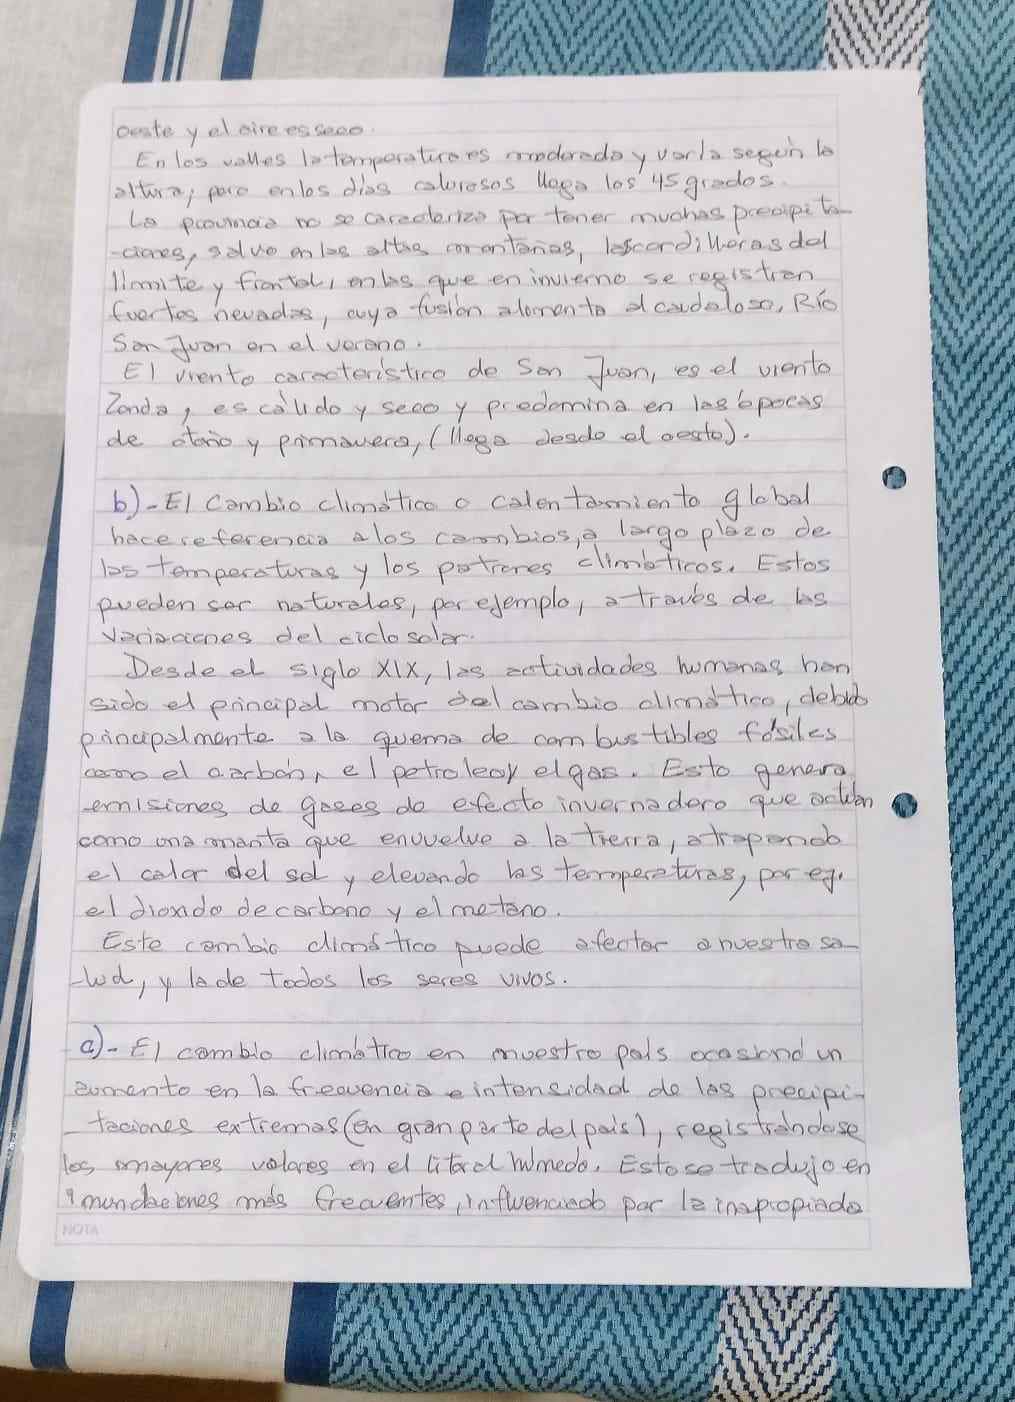 oeste y el aire es seco.
En los valles la temperatura es moderada y varía según la
altura, pero en los días calurosos llega los 45 grados.
La provincia no se caracteriza por tener muchas precipita-
-ciones, salvo en las altas montañas, las cordilleras del
límite y frontal, en las que en invierno se registran
fuertes nevadas, cuya fusión alimenta al caudaloso, Río
San Juan en el verano.
El viento característico de San Juan, es el viento
Zonda, es cálido y seco y predomina en las épocas
de otoño y primavera, (llega desde el oeste).
b)- El cambio climático o calentamiento global
hace referencia a los cambios, a largo plazo de
las temperaturas y los patrones climáticos. Estos
pueden ser naturales, por ejemplo, a través de las
variaciones del ciclo solar.
Desde el siglo XIX, las actividades humanas han
sido el principal motor del cambio climático, debido
principalmente a la quema de combustibles fósiles
como el carbón, el petroleo y el gas. Esto genera
emisiones de gases de efecto invernadero que actúan
como una manta que envuelve a la tierra, atrapando
el calor del sol y elevando las temperaturas, por ej.
el dioxido de carbono y el metano.
Este cambio climático puede afectar a nuestra sa-
-lud, y la de todos los seres vivos.
a)- El cambio climático en nuestro país ocasionó un
aumento en la frecuencia e intensidad de las precipi-
-taciones extremas (en gran parte del país), registrándose
los mayores valores en el litoral húmedo. Esto se tradujo en
inundaciones más frecuentes, influenciado por la inapropiada
NOTA